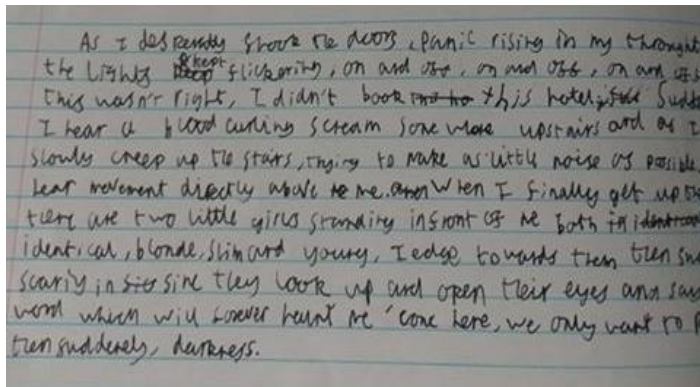 As I desperatly shook the doors, panic rising in my throught
the lights kept flickering, on and off, on and off, on and off
This wasn't right, I didn't book this hotel. Sudd
I hear a blood curling scream some where upstairs and as I
slowly creep up the stairs, trying to make as little noise as possible,
hear movement directly above me. When I finally get up
there are two little girls standing infront of me both
identical, blonde, slim and young, I edge towards them then sud
scarily in sine they look up and open their eyes and say
word which will forever haunt me 'come here, we only want to p
then suddenely, darkness.